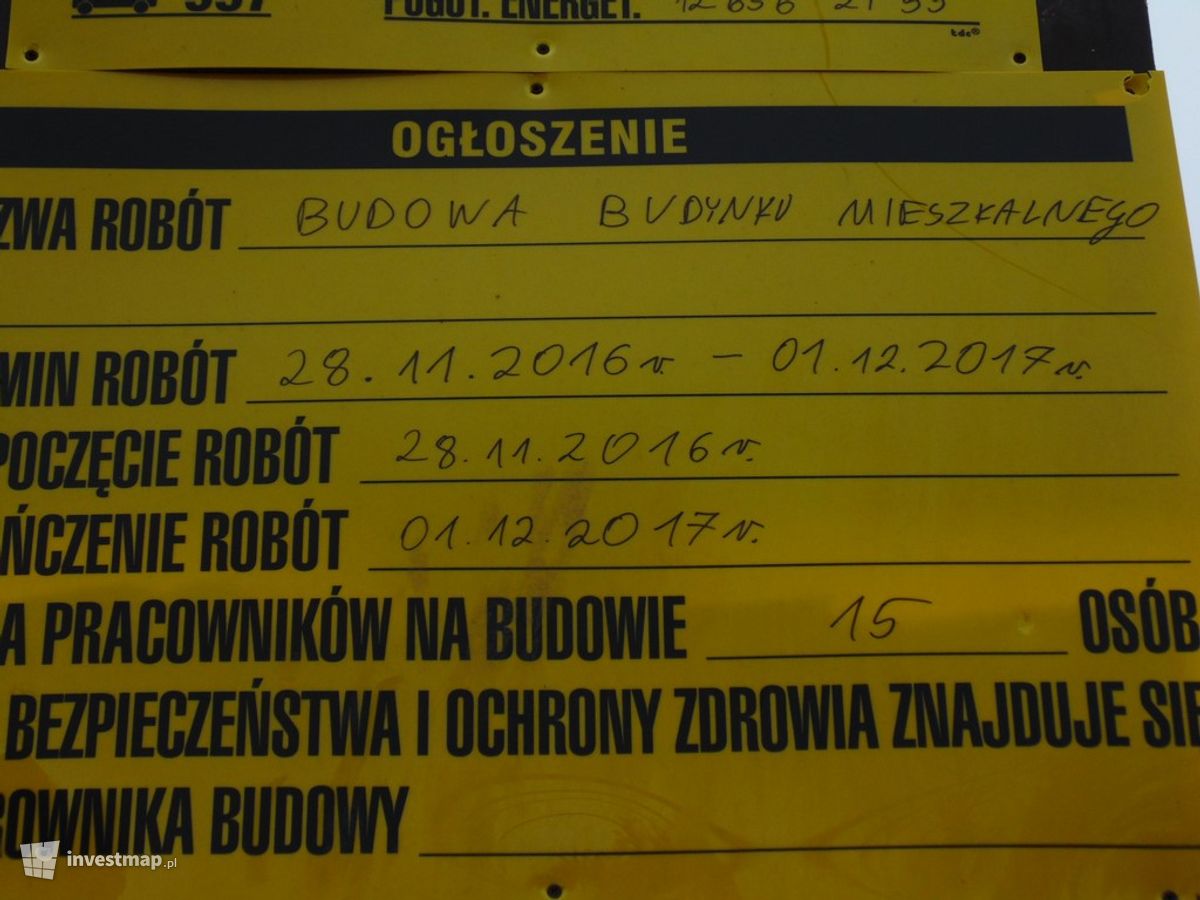 997 POGOT. ENERGET. 12 656 21 55
tdc®
OGŁOSZENIE
ZWA ROBÓT BUDOWA BUDYNKU MIESZKALNEGO
MIN ROBÓT 28.11.2016r. – 01.12.2017r.
POCZĘCIE ROBÓT 28.11.2016r.
ŃCZENIE ROBÓT 01.12.2017r.
A PRACOWNIKÓW NA BUDOWIE 15 OSÓB
BEZPIECZEŃSTWA I OCHRONY ZDROWIA ZNAJDUJE SIĘ
ROWNIKA BUDOWY
investmap.pl